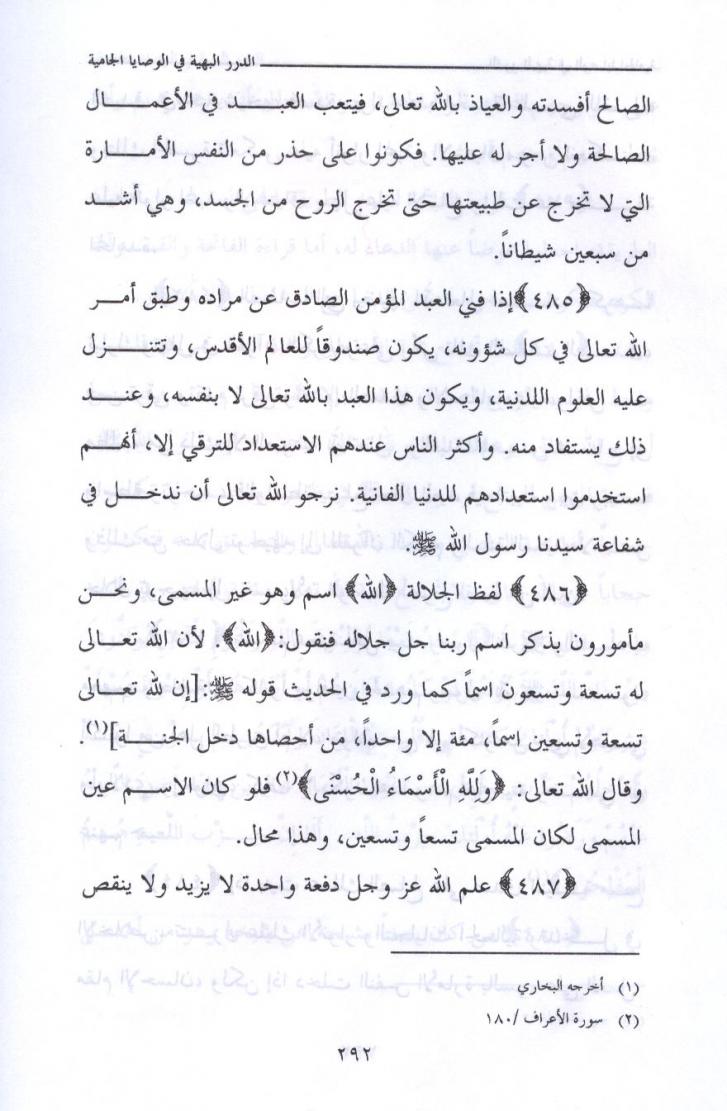 الدرر البهية في الوصايا الجامية
الصالح أفسدته والعياذ بالله تعالى، فيتعب العبد في الأعمال
الصالحة ولا أجر له عليها. فكونوا على حذر من النفس الأمارة
التي لا تخرج عن طبيعتها حتى تخرج الروح من الجسد، وهي أشد
من سبعين شيطاناً.
﴿٤٨٥﴾إذا فني العبد المؤمن الصادق عن مراده وطبق أمر
الله تعالى في كل شؤونه، يكون صندوقاً للعالم الأقدس، وتتنزل
عليه العلوم اللدنية، ويكون هذا العبد بالله تعالى لا بنفسه، وعند
ذلك يستفاد منه. وأكثر الناس عندهم الاستعداد للترقي إلا، أنهم
استخدموا استعدادهم للدنيا الفانية. نرجو الله تعالى أن ندخل في
شفاعة سيدنا رسول الله ﷺ.
﴿٤٨٦﴾ لفظ الجلالة ﴿الله﴾ اسم وهو غير المسمى، ونحن
مأمورون بذكر اسم ربنا جل جلاله فنقول:﴿الله﴾. لأن الله تعالى
له تسعة وتسعون اسماً كما ورد في الحديث قوله ﷺ:[إن لله تعالى
تسعة وتسعين اسماً، مئة إلا واحداً، من أحصاها دخل الجنة](١).
وقال الله تعالى: ﴿وَلِلَّهِ الْأَسْمَاءُ الْحُسْنَى﴾(٢)فلو كان الاسم عين
المسمى لكان المسمى تسعاً وتسعين، وهذا محال.
﴿٤٨٧﴾ علم الله عز وجل دفعة واحدة لا يزيد ولا ينقص
(١) أخرجه البخاري
(٢) سورة الأعراف /١٨٠
٢٩٢